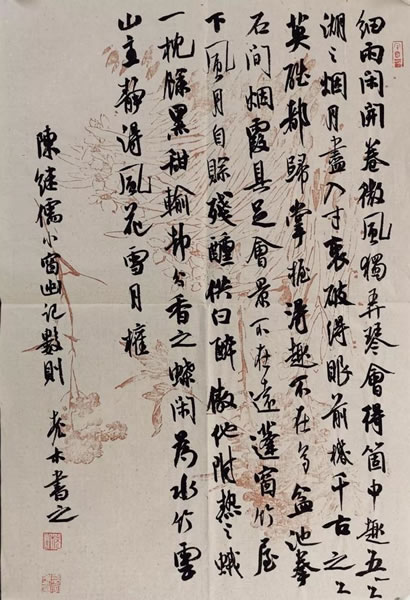 細雨闲開卷微風獨弄琴會得箇中趣五
湖之烟月盡入寸裏破得眼前機千古之
英雄都歸掌握得趣不在多盆池拳
石間烟霞具足會景不在遠蓬窗竹屋
下風月自賒殘醺供白醉傲他附熱之蛾
一枕餘黑甜輸却分香之蝶闲為水竹雲
山主静得風花雪月權
陳継儒小窗幽記數則 老木書之